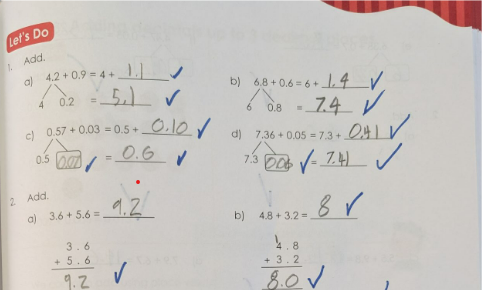 Let's Do
1. Add.
a) 4.2 + 0.9 = 4 + 1.1
4 0.2 = 5.1
b) 6.8 + 0.6 = 6 + 1.4
6 0.8 = 7.4
c) 0.57 + 0.03 = 0.5 + 0.10
0.5 0.07 = 0.6
d) 7.36 + 0.05 = 7.3 + 0.41
7.3 0.06 = 7.41
2. Add.
a) 3.6 + 5.6 = 9.2
b) 4.8 + 3.2 = 8
3.6
+ 5.6
9.2
1
4.8
+ 3.2
8.0